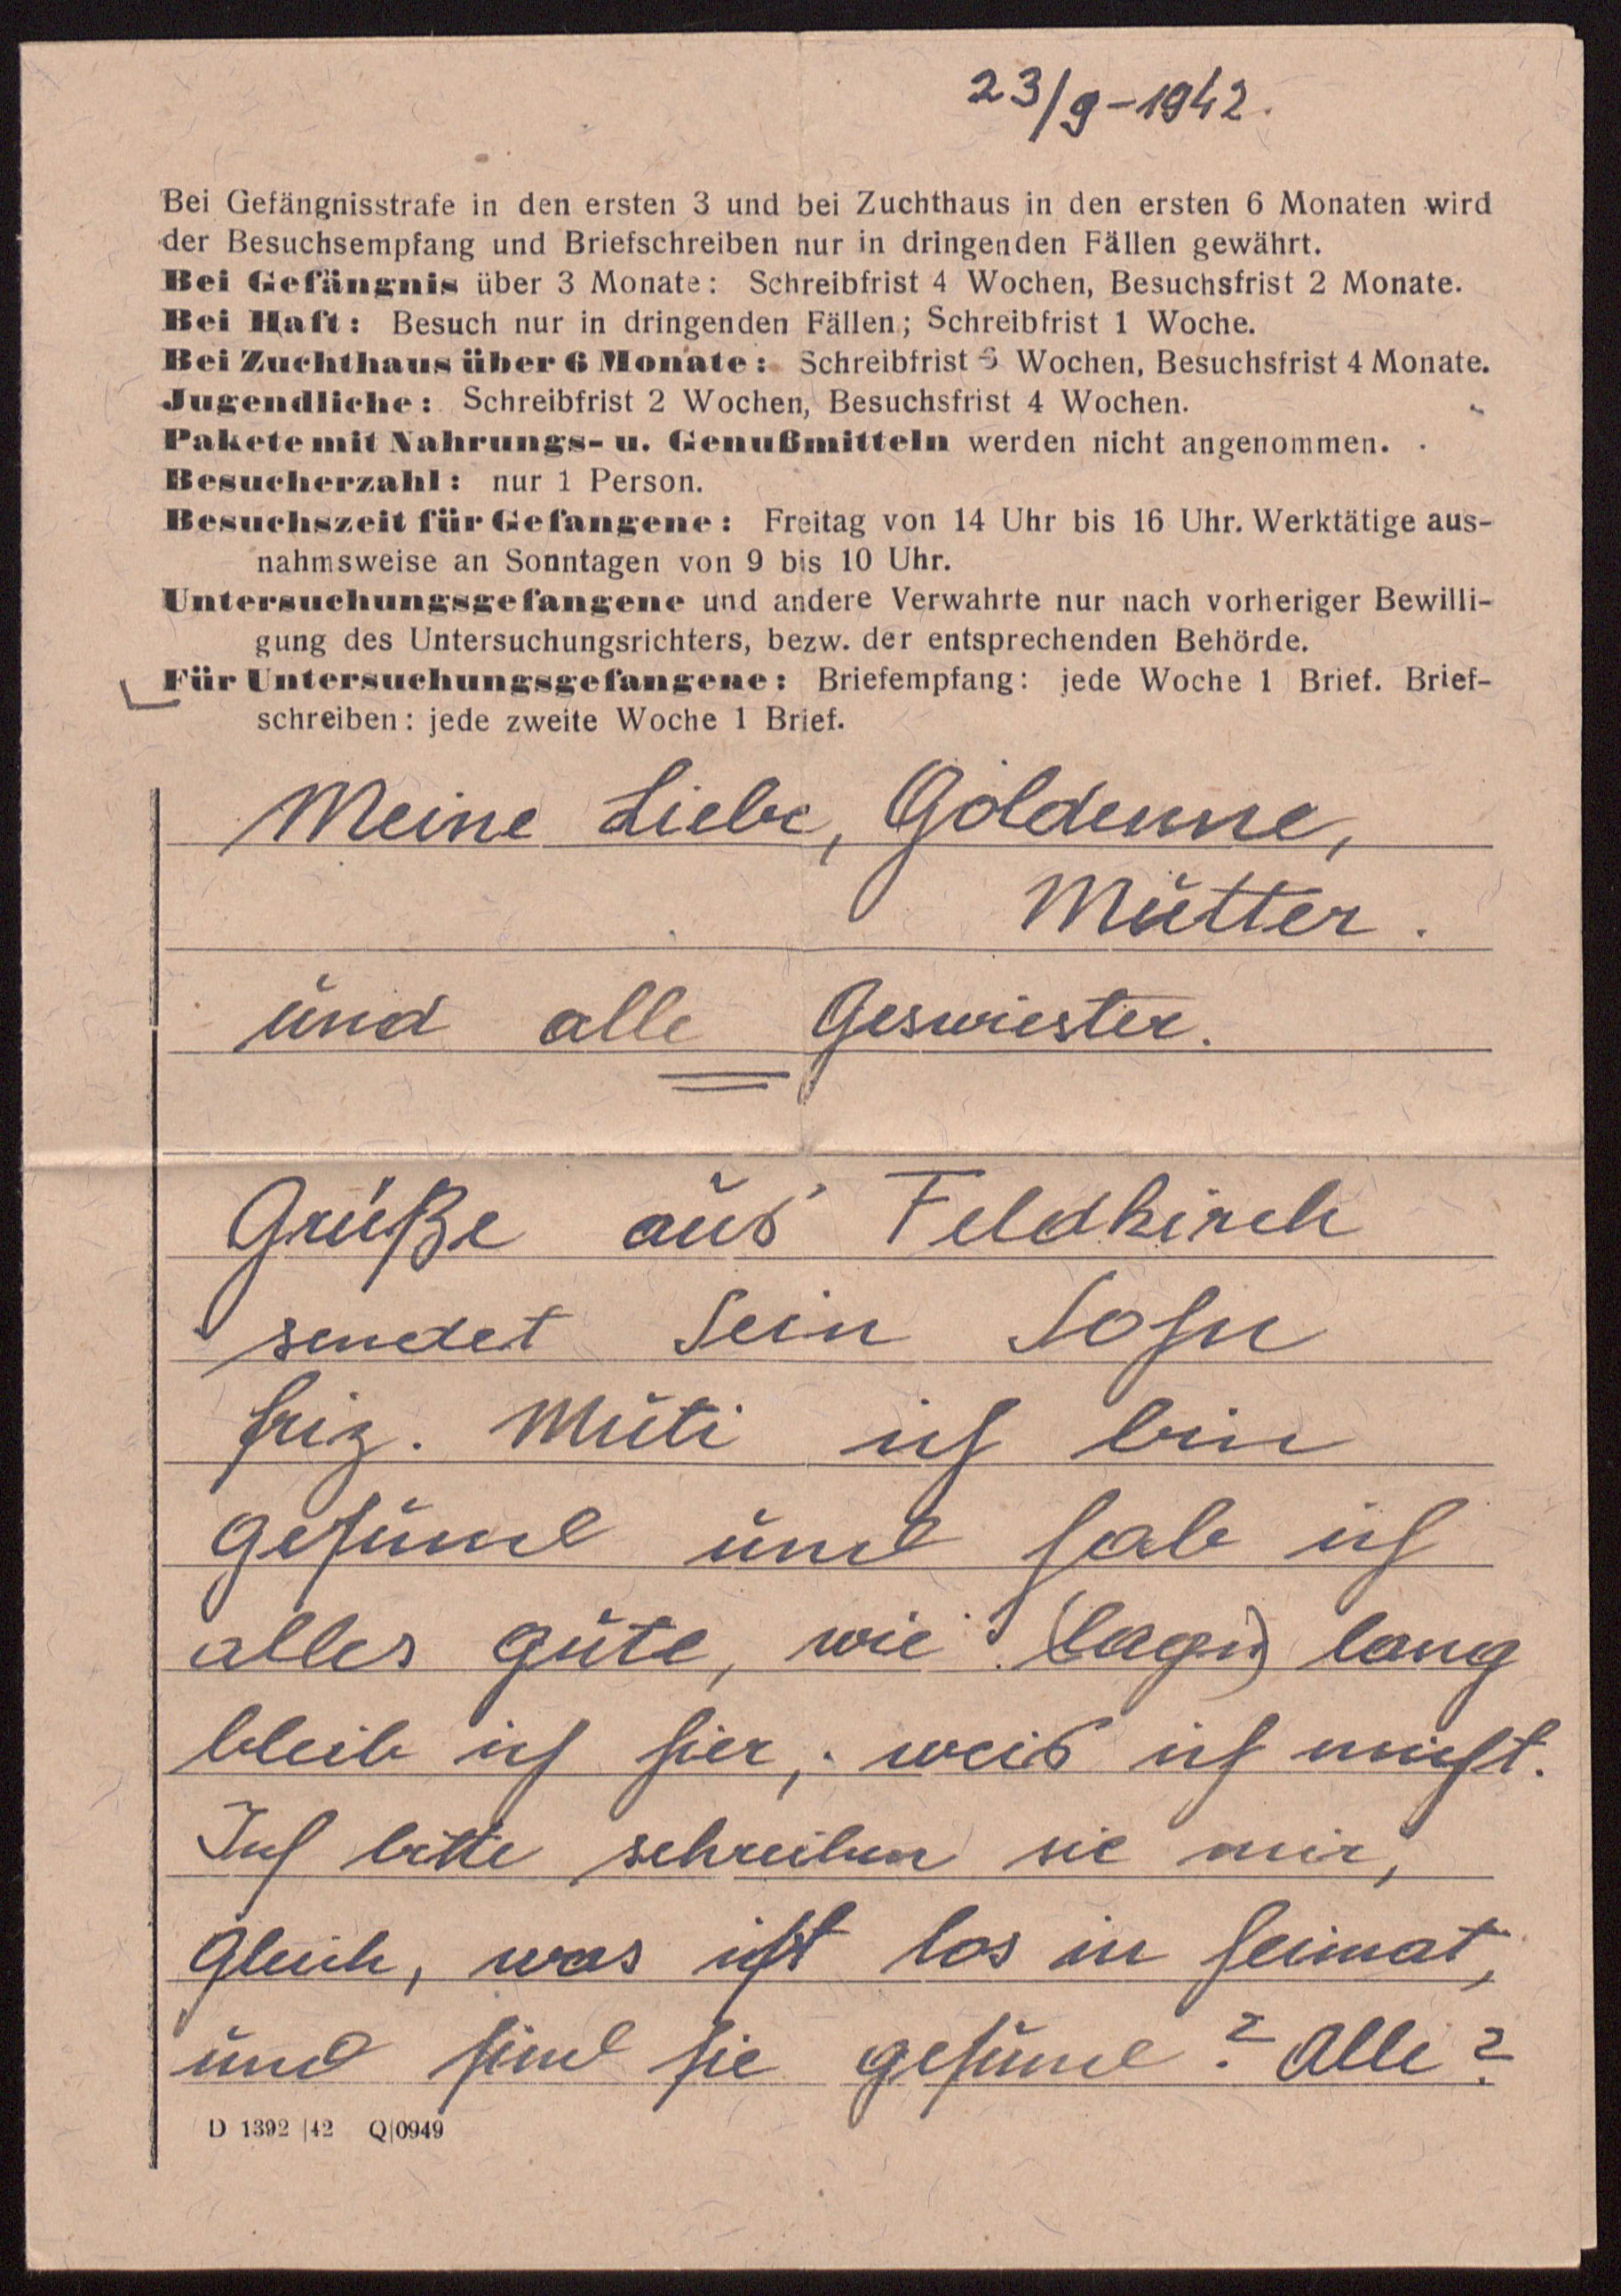 23/9-1942.
Bei Gefängnisstrafe in den ersten 3 und bei Zuchthaus in den ersten 6 Monaten wird
der Besuchsempfang und Briefschreiben nur in dringenden Fällen gewährt.
Bei Gefängnis über 3 Monate: Schreibfrist 4 Wochen, Besuchsfrist 2 Monate.
Bei Haft: Besuch nur in dringenden Fällen; Schreibfrist 1 Woche.
Bei Zuchthaus über 6 Monate: Schreibfrist 6 Wochen, Besuchsfrist 4 Monate.
Jugendliche: Schreibfrist 2 Wochen, Besuchsfrist 4 Wochen.
Pakete mit Nahrungs- u. Genußmitteln werden nicht angenommen.
Besucherzahl: nur 1 Person.
Besuchszeit für Gefangene: Freitag von 14 Uhr bis 16 Uhr. Werktätige aus-
nahmsweise an Sonntagen von 9 bis 10 Uhr.
Untersuchungsgefangene und andere Verwahrte nur nach vorheriger Bewilli-
gung des Untersuchungsrichters, bezw. der entsprechenden Behörde.
Für Untersuchungsgefangene: Briefempfang: jede Woche 1 Brief. Brief-
schreiben: jede zweite Woche 1 Brief.
Meine Liebe, Goldenne,
Mutter.
und alle Geswiester.
Grüße aus Feldkirch
sendet Sein Sohn
friz. Muti ich bin
gesund und hab ich
alles gute, wie (lagn) lang
bleib ich hier, weis ich nicht.
Ich bitte schreiben sie mir,
Gleich, was ist los in heimat,
und sind sie gesund? Alle?
D 1392 |42 Q|0949